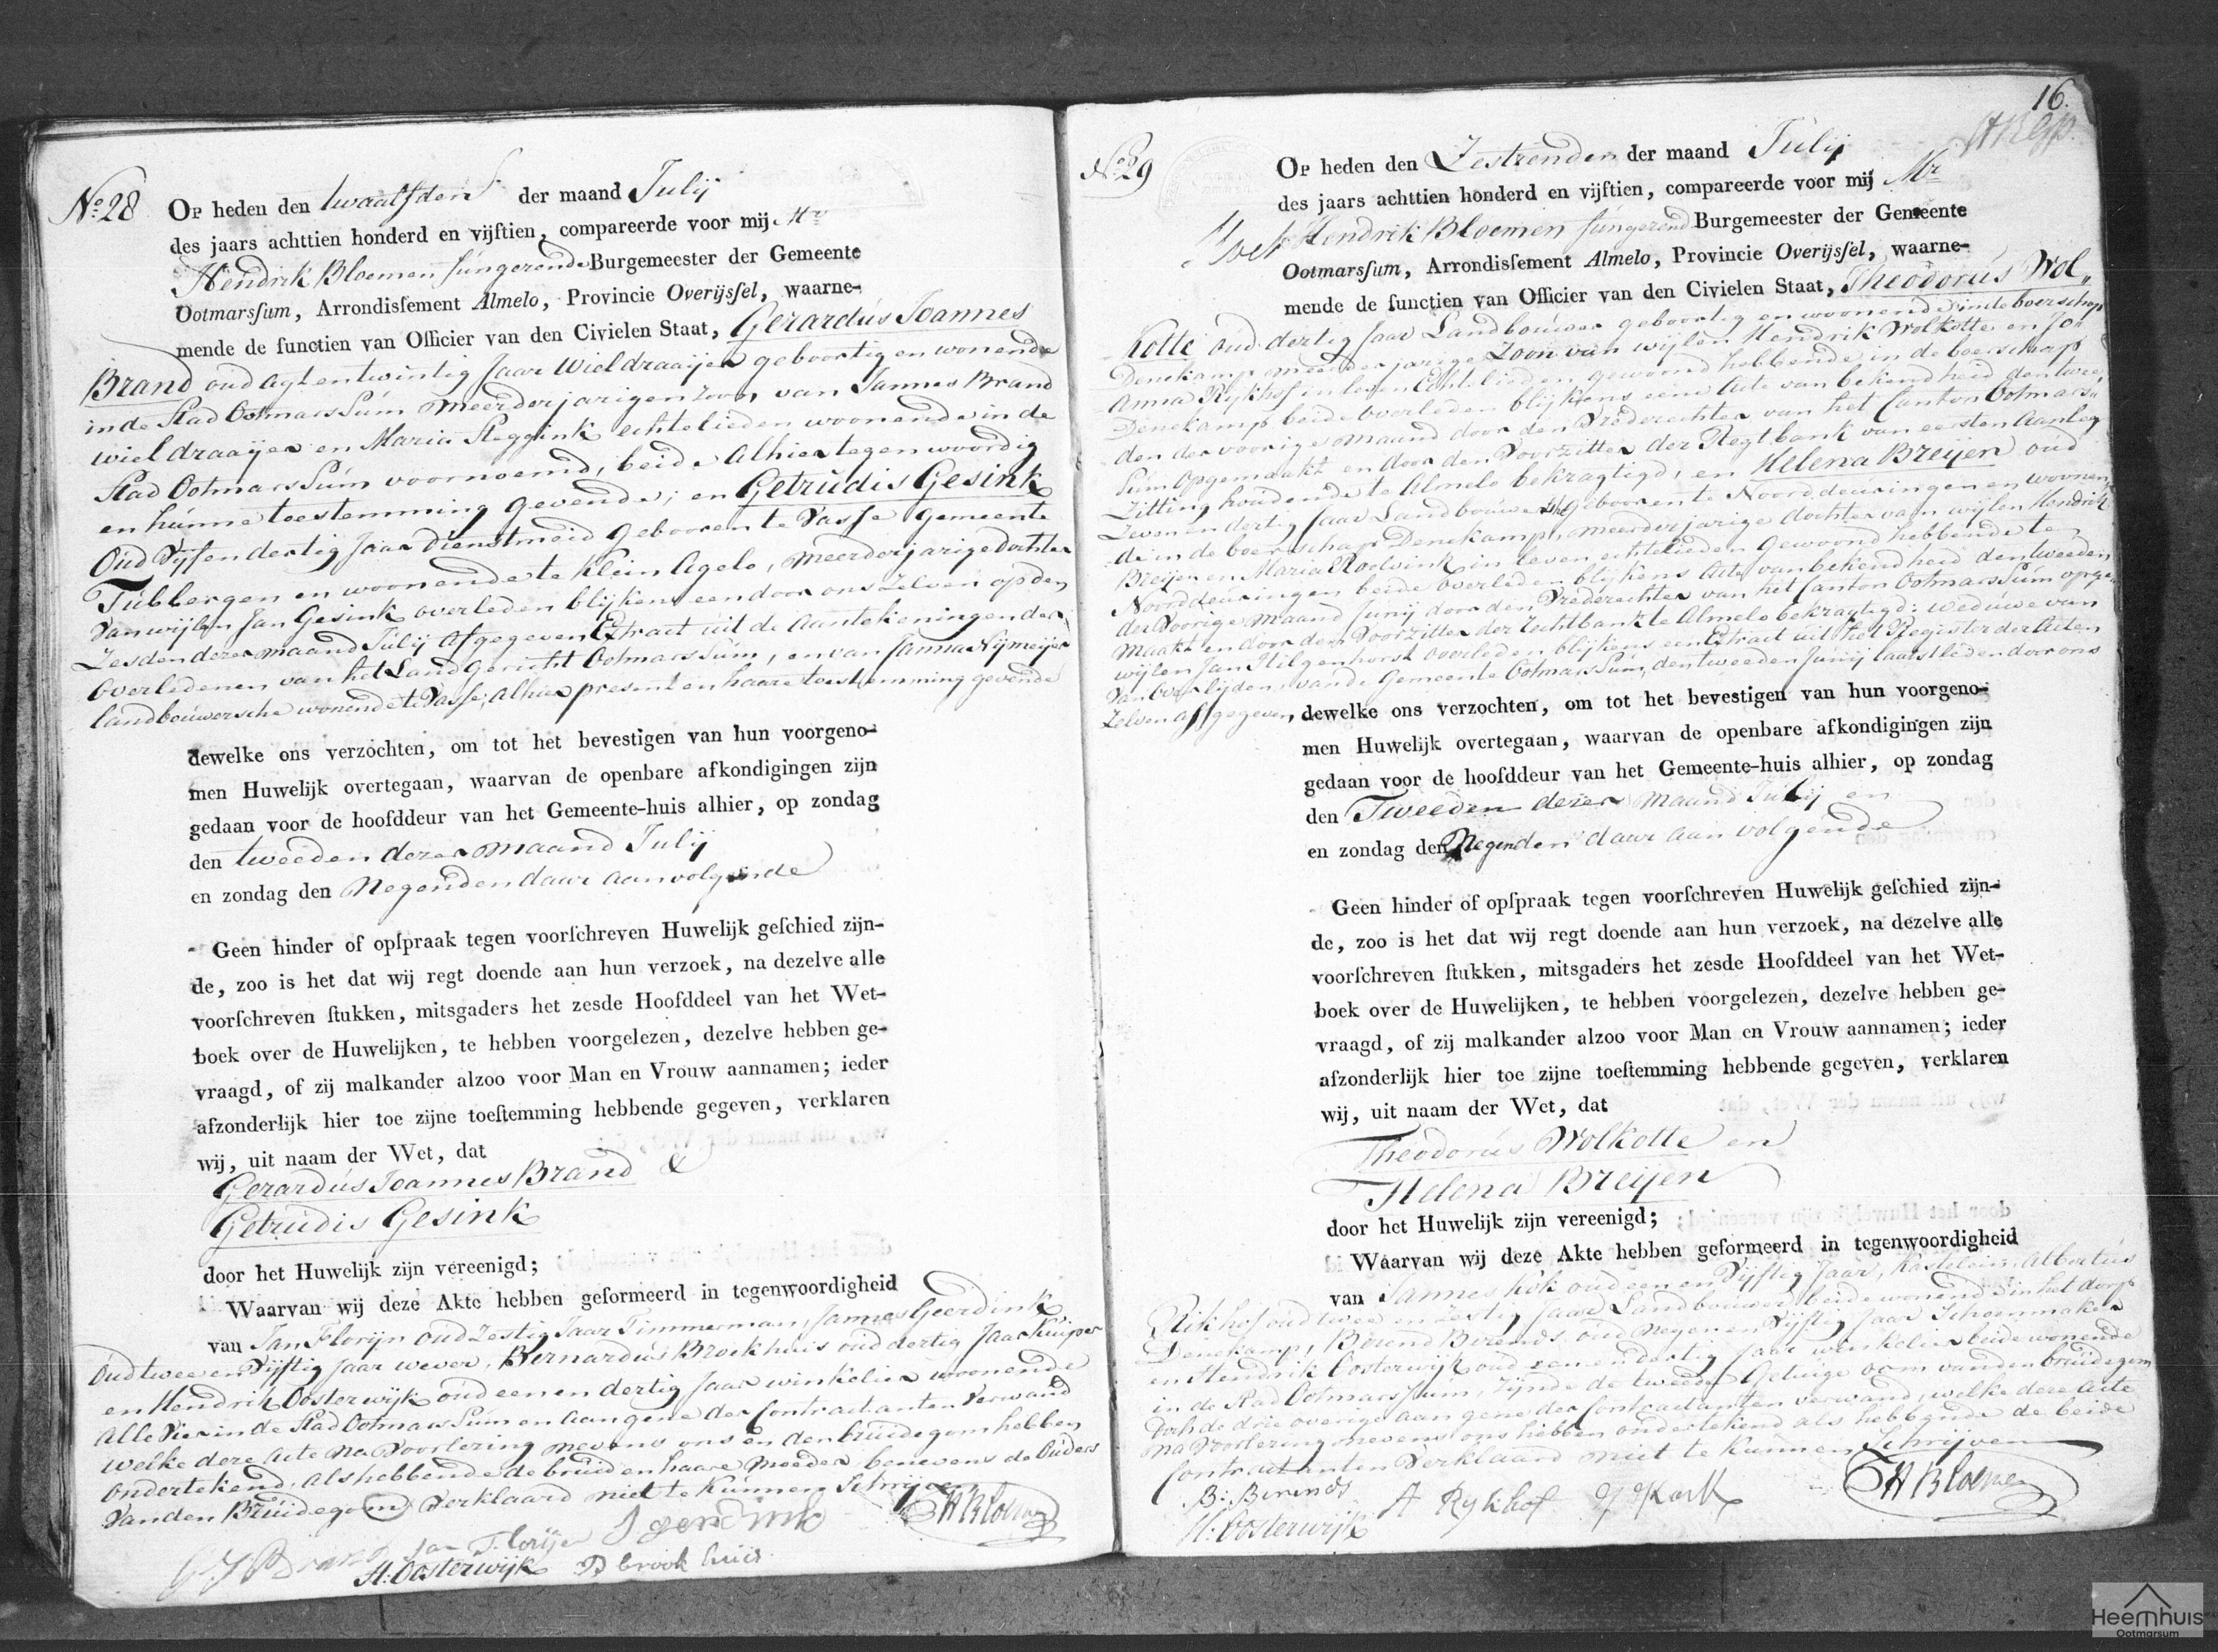 No. 28
Op heden den twaalfden der maand Julij
des jaars achttien honderd en vijftien, compareerde voor mij Mr
Hendrik Bloemen fungerende Burgemeester der Gemeente
Ootmarsſum, Arrondisſement Almelo, Provincie Overijsſel, waarne-
mende de functien van Officier van den Civielen Staat, Gerardús Joannes
Brand oúd agtentwintig Jaar Wieldraaijer geboortig en wonende
in de Stad Ootmarssúm meerderjarigen zoon van Jannes Brand
wieldraaijer en Maria Steggink echtelieden woonende in de
Stad Ootmarssúm voornoemd, beide alhier tegenwoordig
en húnne toestemming gevende; en Getrúdis Gesink
Oúd Vyfendertig Jaar dienstmeid Gebooren te Vasse Gemeente
Túbbergen en woonende te Klein Agelo, meerderjarige dochter
van wijlen Jan Gesink overleden blijkens een door ons zelven op den
Zesden dezer maand Júlij afgegeven Extract úit de aantekeningen der
Overledenen van het Landgericht Ootmarssúm, en van Janna Nijmeijer
landboúwersche wonende te Vasse, alhier present en haare toestemming gevende
dewelke ons verzochten, om tot het bevestigen van hun voorgeno-
men Huwelijk overtegaan, waarvan de openbare afkondigingen zijn
gedaan voor de hoofddeur van het Gemeente-huis alhier, op zondag
den tweeden dezer maand Julij
en zondag den Negenden daar aanvolgende
Geen hinder of opſpraak tegen voorſchreven Huwelijk geſchied zijn-
de, zoo is het dat wij regt doende aan hun verzoek, na dezelve alle
voorſchreven ſtukken, mitsgaders het zesde Hoofddeel van het Wet-
boek over de Huwelijken, te hebben voorgelezen, dezelve hebben ge-
vraagd, of zij malkander alzoo voor Man en Vrouw aannamen; ieder
afzonderlijk hier toe zijne toeſtemming hebbende gegeven, verklaren
wij, uit naam der Wet, dat
Gerardús Joannes Brand &
Getrúdis Gesink
door het Huwelijk zijn vereenigd;
Waarvan wij deze Akte hebben geformeerd in tegenwoordigheid
van Jan Florijn oúd Zestig Jaar Timmerman, Jannes Geerdink
Oúd twee en Vijftig Jaar wever, Bernardús Broekhuis oúd dertig Jaar Kúiper
en Hendrik Oosterwijk oúd een en dertig Jaar winkelier woonende
alle Vier in de Stad Ootmarssúm en aan gene der Contractanten Verwand
welke deze acte Na Voorlezing nevens ons en den brúidegom hebben
ondertekend, als hebbende de brúid en haare moeder benevens de Oúders
van den Brúidegom Verklaard niet te kúnnen Schrijven
G J Brand Jan Florijn J Gerdink HBloemen
H: Oosterwijk B brook huis
16.
No. 29
Op heden den Zestienden der maand Júlij
des jaars achttien honderd en vijftien, compareerde voor mij Mr
Hendrik Bloemen fúngerend Burgemeester der Gemeente
Ootmarsſum, Arrondisſement Almelo, Provincie Overijsſel, waarne-
mende de functien van Officier van den Civielen Staat, Theodorús Wol-
kotte oud dertig Jaar Landboúwer geboortig en woonende in de boerschap
Denekamp meerderjarige Zoon van wijlen Hendrik Wolkotte en Jo-
anna Rijkhof in leven Echtelieden, gewoond hebbende in de boerschap
Denekamp beide overleden blijkens eene acte van bekendheid den twee-
den der voorige maand door den Vrederechter van het Canton Ootmars-
súm opgemaakt en door den Voorzitter der Regtbank van eersten aanleg
Zitting houdende te Almelo bekragtigd, en Helena Breijen oud
Zeven en dertig Jaar Landboúwersche Gebooren te Noorddeúringen en woonen-
de in de boerschap Denekamp, meerderjarige dochter van wijlen Hendrik
Breijen en Maria Roelvink in leven echtelieden Gewoond hebbende te
Noorddeúringen beide overleden blijkens acte van bekendheid den tweeden
der Voorige maand Junij door den Vrederechter van het Canton Ootmarssúm opge-
maakt en door den Voorzitter der Rechtbank te Almelo bekragtigd: wedúwe van
wijlen Jan Hilgenhorst overleden blijkens een Extract uit het Register der Acten
van overlijden, van de Gemeente Ootmarssúm, den tweeden Junij laatstleden door ons
Zelven affgegeven, dewelke ons verzochten, om tot het bevestigen van hun voorgeno-
men Huwelijk overtegaan, waarvan de openbare afkondigingen zijn
gedaan voor de hoofddeur van het Gemeente-huis alhier, op zondag
den Tweeden dezer maand Julij en
en zondag den Negenden daar aanvolgende
Geen hinder of opſpraak tegen voorſchreven Huwelijk geſchied zijn-
de, zoo is het dat wij regt doende aan hun verzoek, na dezelve alle
voorſchreven ſtukken, mitsgaders het zesde Hoofddeel van het Wet-
boek over de Huwelijken, te hebben voorgelezen, dezelve hebben ge-
vraagd, of zij malkander alzoo voor Man en Vrouw aannamen; ieder
afzonderlijk hier toe zijne toeſtemming hebbende gegeven, verklaren
wij, uit naam der Wet, dat
Theodorús Wolkotte en
Helena Breijen
door het Huwelijk zijn vereenigd;
Waarvan wij deze Akte hebben geformeerd in tegenwoordigheid
van Jannes Kok oud een en Vijftig Jaar, Kastelein, Albertús
Rikhof oud twee en Zestig Jaar Landbouwer, beide wonende in het dorp
Denekamp, Berend Berends oúd Negen en Vijftig Jaar Schoenmaker
en Hendrik Oosterwijk oud een en dertig Jaar winkelier beide wonende
in de Stad Ootmarssúm, Zijnde de tweede Getuige oom van den brúidegom
doch de drie overige aan gene der Contractanten verwand, welke deze acte
na Voorlezing nevens ons hebben ondertekend als hebbende de beide
Contractanten Verklaard niet te kunnen Schrijven
B: Berends A Rykhof HBloemen
H: Oosterwijk
Heemhuis
Ootmarsum